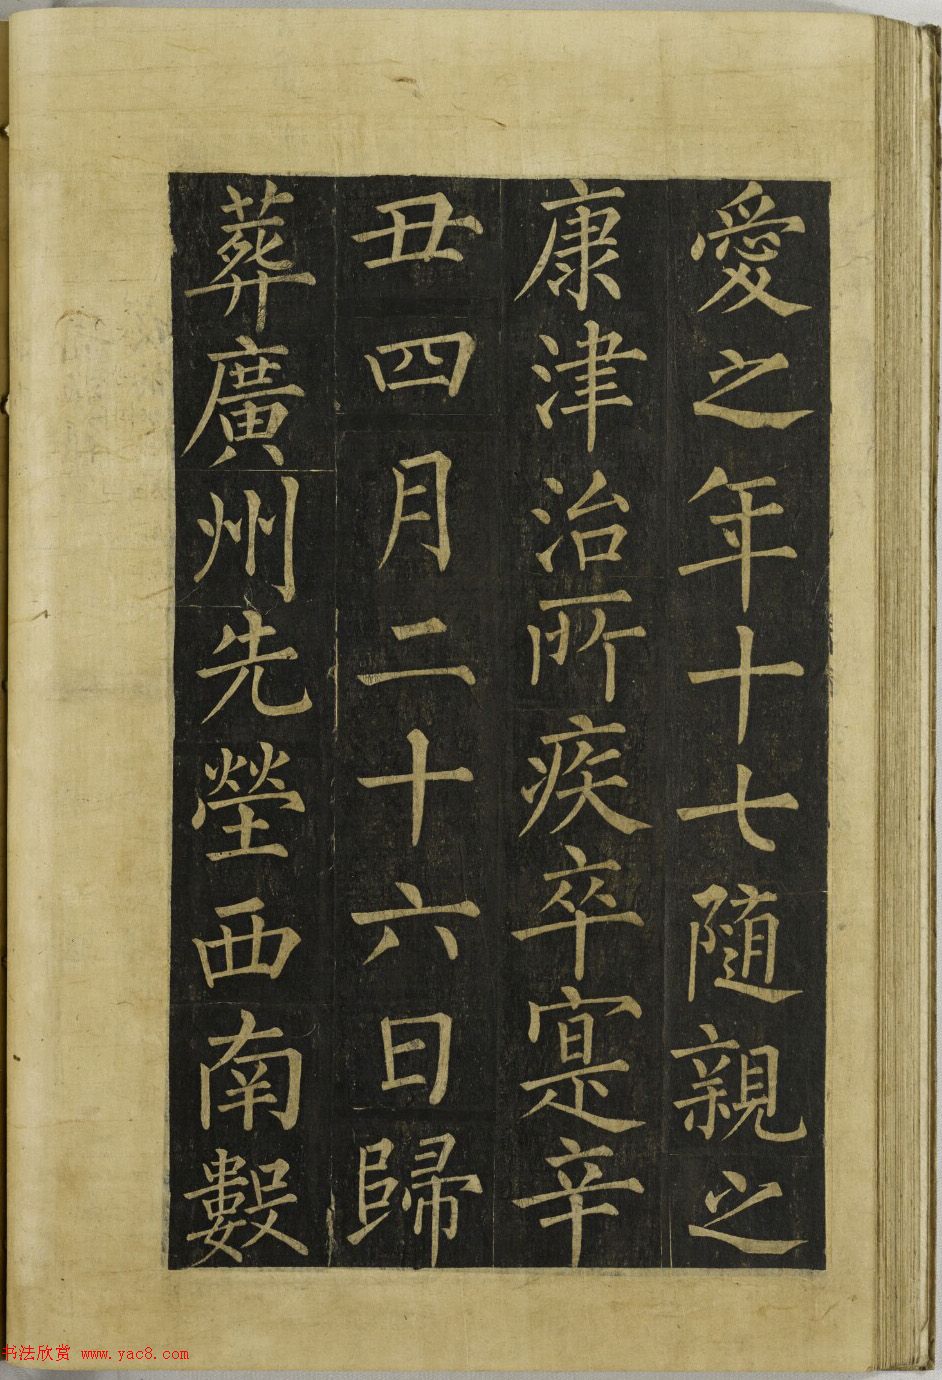 愛之年十七隨親之
康津治所疾卒寔辛
丑四月二十六日歸
葬廣州先塋西南數
书法欣赏 www.yac8.com